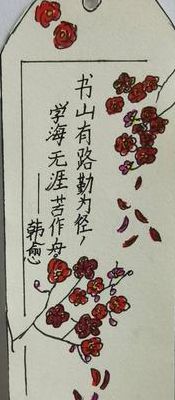 书山有路勤为径，
学海无涯苦作舟。
——韩愈